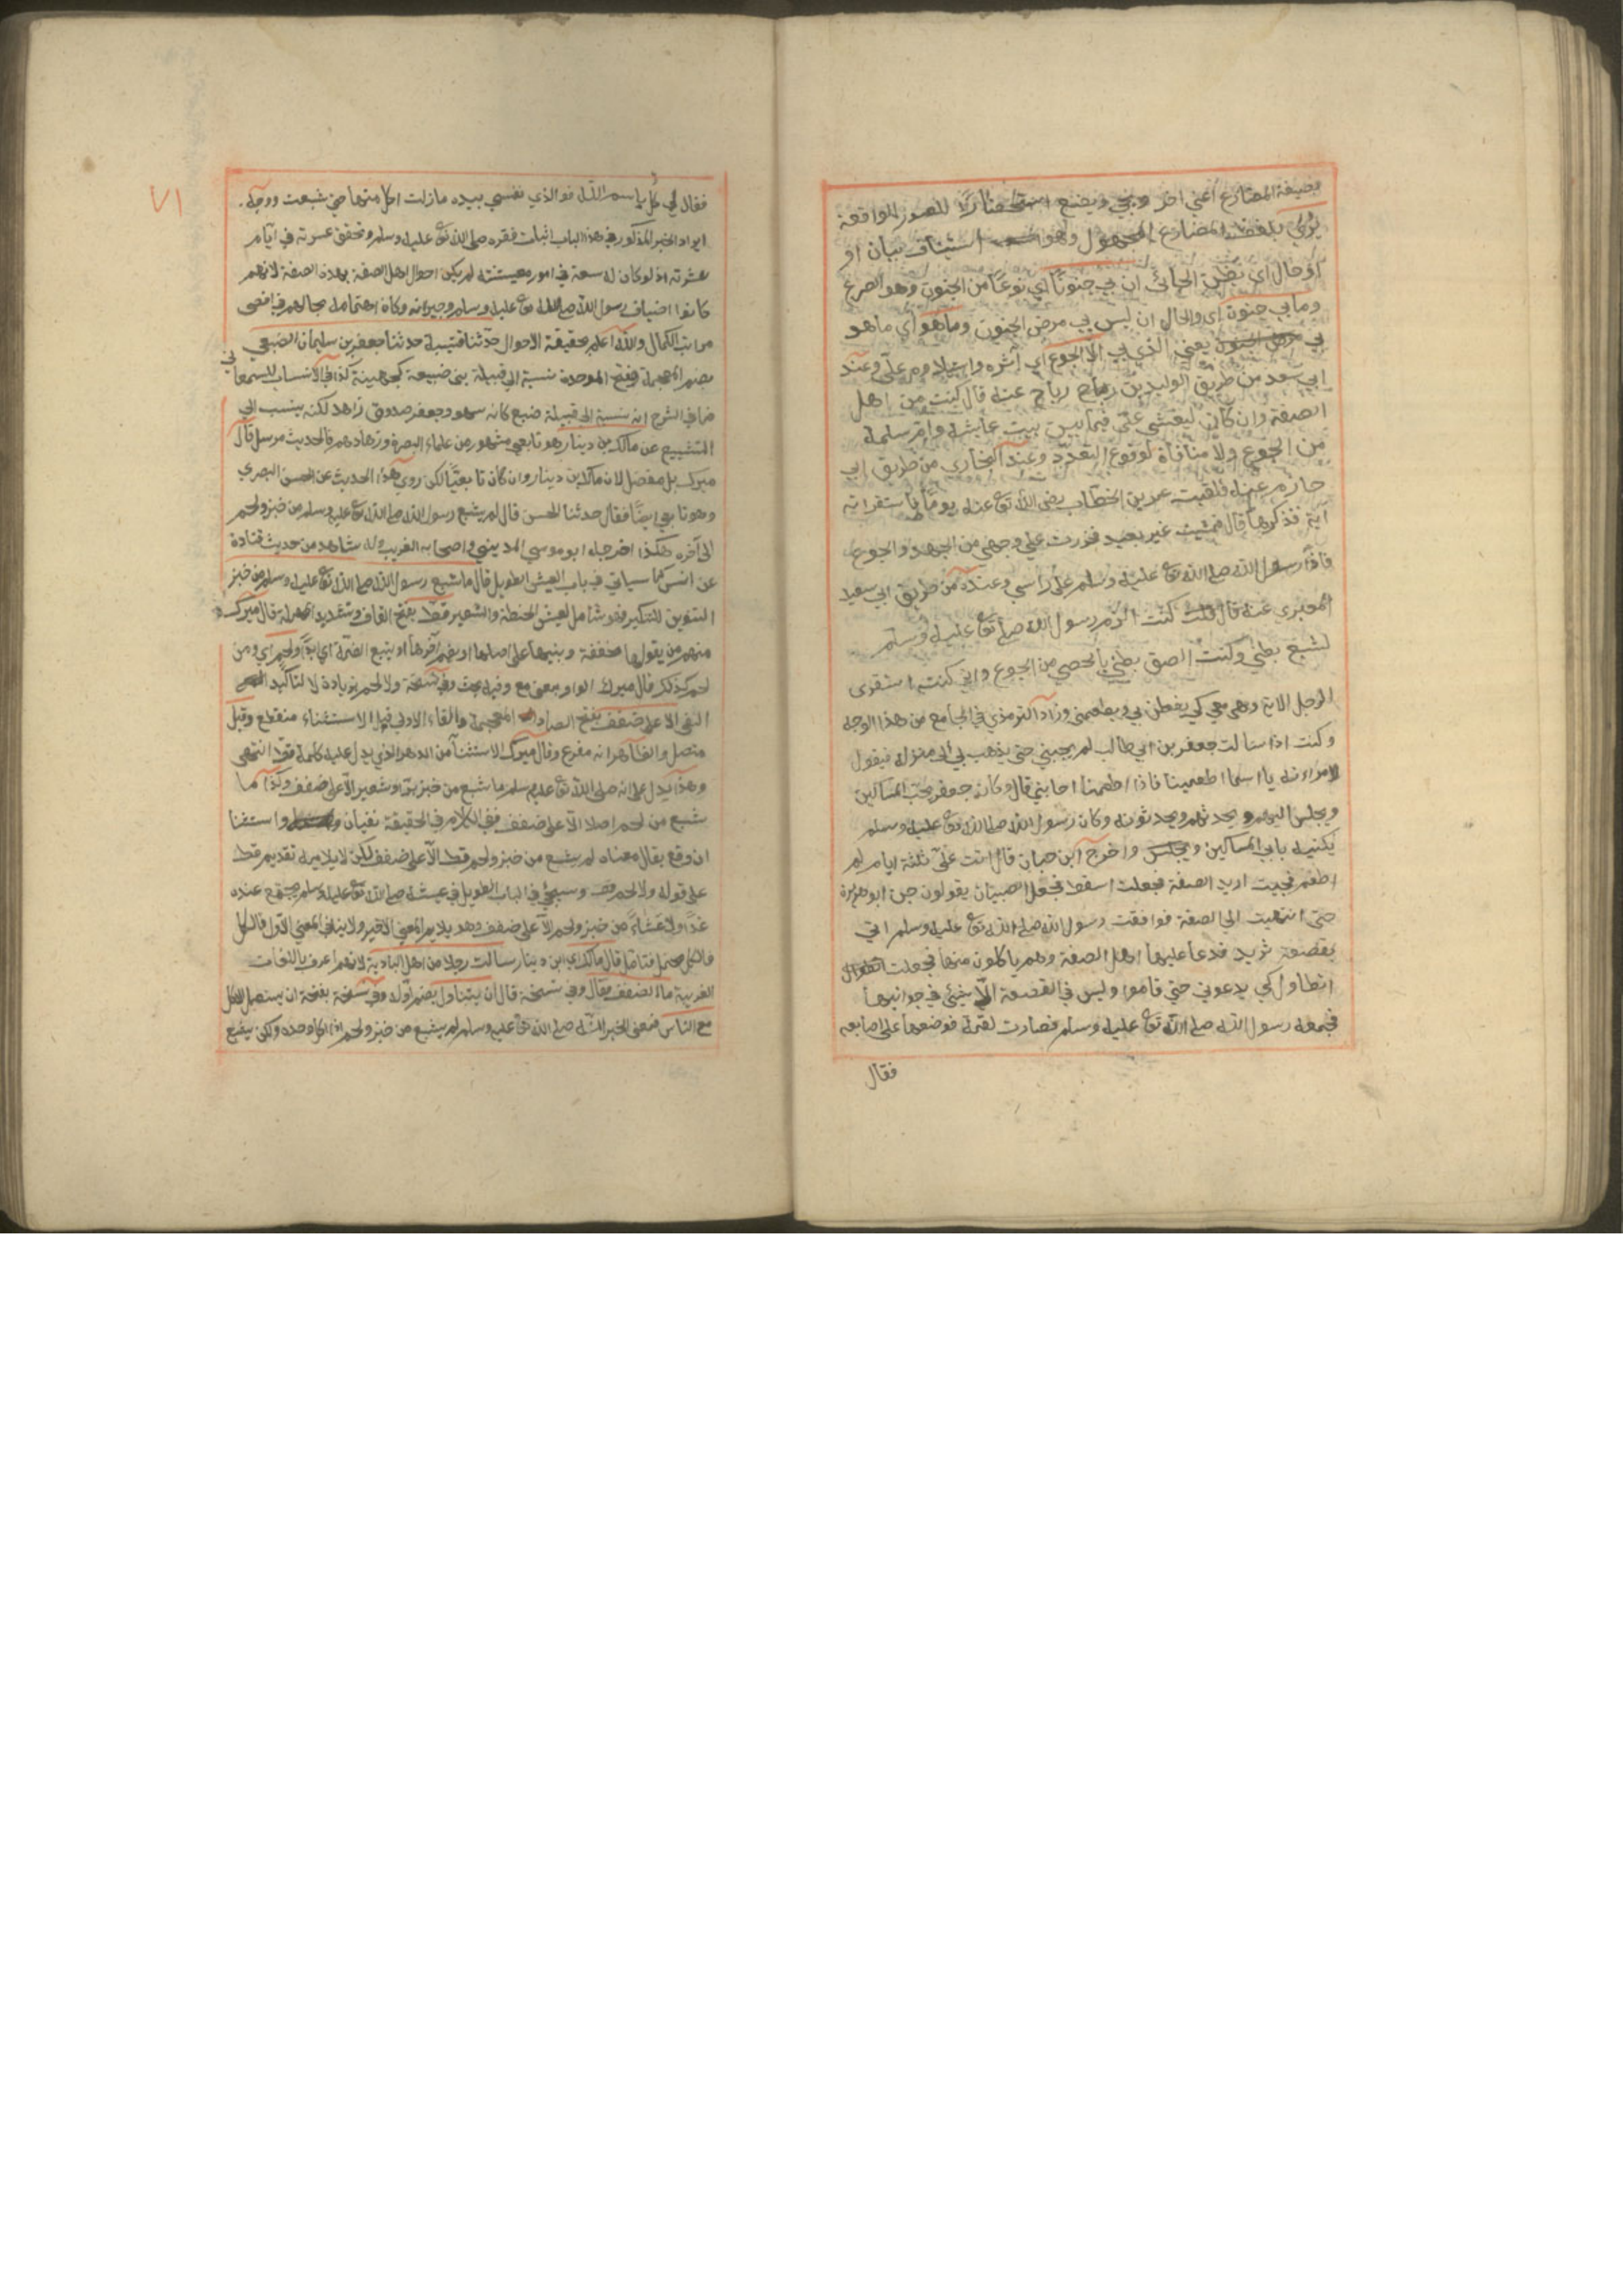 بصيغة المضارع اعني اخر ويجيء ويضع استحضارا للصور الواقعة
يُرى بلفظ المضارع المجهول وهو استيناف بيان او
او حال اي يظن الجائي ان بي جنونا اي نوعا من الجنون وهو الصرع
وما بي جنون اي والحال ان ليس بي مرض الجنون وما هو اي ما هو
بي يعني الذي بي الا الجوع اي اثره واستيلاوه علي وعند
ابن سعد من طريق الوليد بن رباح عنه قال كنت من اهل
الصفة وان كان ليغشى علي فيما بين بيت عايشة وام سلمة
من الجوع ولا منافاة لوقوع التعدد وعند البخاري من طريق ابي
حازم عنه فلقيت عمر بن الخطاب رضي الله تع عنه يوما فاستقراته
آية فذكرها قال فمشيت غير بعيد فخررت على وجهي من الجهد والجوع
فاذا رسول الله صلى الله تع عليه وسلم على راسي وعنده من طريق ابي سعيد
المقبري عنه قال كنت الزم رسول الله صلى الله تع عليه وسلم
لشبع بطني وكنت الصق بطني بالحصى من الجوع واني كنت استقرئ
الرجل الاية وهي معي كي يفطن بي ويطعمني وزاد الترمذي في الجامع من هذا الوجه
وكنت اذا سالت جعفر بن ابي طالب لم يجبني حتى يذهب بي الى منزله فيقول
لامراته يا اسما اطعمينا فاذا اطعمتنا اجابني قال وكان جعفر يحب المساكين
ويجلس اليهم ويحدثهم ويحدثونه وكان رسول الله صلى الله تع عليه وسلم
يكنيه بابي المساكين واخرج ابن حبان قال اتت علي ثلثة ايام لم
اطعم فجيت اريد الصفة فجعلت اسقط فجعل الصبيان يقولون جن ابو هريرة
حتى انتهيت الى الصفة فوافقت رسول الله صلى الله تع عليه وسلم اتي
بقصعة ثريد فدعا عليها اهل الصفة وهم ياكلون منها فجعلت
اتطاول كي يدعوني حتى قاموا وليس في القصعة الا شيئ في جوانبها
فجمعه رسول الله صلى الله تع عليه وسلم فصارت لقمة فوضعها على اصابعه
فقال
٧١
فقال لي كل باسم الله فوالذي نفسي بيده ما زلت اكل منها حتى شبعت ووجه
ايراد الخبر المذكور في هذا الباب اثبات فقره صلى الله تع عليه وسلم وتحقق عسرته في ايام
عشرته اذ لو كان له سعة في امور معيشته لم يكن احوال اهل الصفة بهذه الصفة لانهم
كانوا اضياف رسول الله صلى الله تع عليه وسلم وجيرانه وكان اهتمامه بحالهم في اقصى
مراتب الكمال والله اعلم بحقيقة الاحوال حدثنا قتيبة حدثنا جعفر بن سليمان الضبعي
بضم المعجمة وفتح الموحدة نسبة الى قبيلة بني ضبيعة كجهينة كذا في الانساب للسمعاني
فما في الشرح انه نسبة الى قبيلة ضبع كانه سهو وجعفر صدوق زاهد لكنه ينسب الى
التشيع عن مالك بن دينار هو تابعي مشهور من علماء البصرة وزهادهم فالحديث مرسل قال
ميرك بل معضل لان مالك بن دينار وان كان تابعيا لكن روى هذا الحديث عن الحسن البصري
وهو تابعي ايضا فقال حدثنا الحسن قال لم يشبع رسول الله صلى الله تع عليه وسلم من خبز ولحم
الى آخره هكذا اخرجه ابو موسى المديني واصحابه الغريب وله شاهد من حديث قتادة
عن انس كما سياتي في باب العيش الطويل قال ما شبع رسول الله صلى الله تع عليه وسلم من خبز
التنوين للتنكير فهو شامل لعيش الحنطة والشعير قط بفتح القاف وتشديد المهملة قال ميرك
منهم من يقولها مخففة ويبنيها على اصلها او يضم آخرها او يتبع الضمة اي ابدا ولا لحم اي ومن
لحم كذلك قال ميرك الواو بمعنى مع وفيه بحث وفي نسخة ولا لحم بزيادة لا لتاكيد
النفي الا على ضفف بفتح الضاد المعجمة والفاء الاولى قيل الاستثناء منقطع وقيل
متصل والظاهر انه مفرغ وقال ميرك الاستثناء من الدهر الذي يدل عليه كلمة قط انتهى
وهذا يدل على انه صلى الله تع عليه وسلم ما شبع من خبز بر او شعير الا على ضفف وكذا ما
شبع من لحم اصلا الا على ضفف ففي الكلام في الحقيقة نفيان واستثنا
ان وقع يقال معناه لم يشبع من خبز ولحم قط الا على ضفف لكن لا يلايمه تقديم قط
على قوله ولا لحم وسيجيئ في الباب الطويل في عيشه صلى الله تع عليه وسلم لم يجتمع عنده
غداء ولا عشاء من خبز ولحم الا على ضفف وهو يلايم المعنى الاخير ولا ينافي المعنى الاول فالكل
فالكل محتمل فتامل قال مالك اي ابن دينار سالت رجلا من اهل البادية لانهم اعرف باللغات
الغريبة ما الضفف فقال وفي نسخة قال ان يتناول بضم اوله وفي نسخة بفتحه ان يستعمل الاكل
مع الناس فمعنى الخبر انه صلى الله تع عليه وسلم لم يشبع من خبز ولحم اذا اكل وحده ولكن يشبع